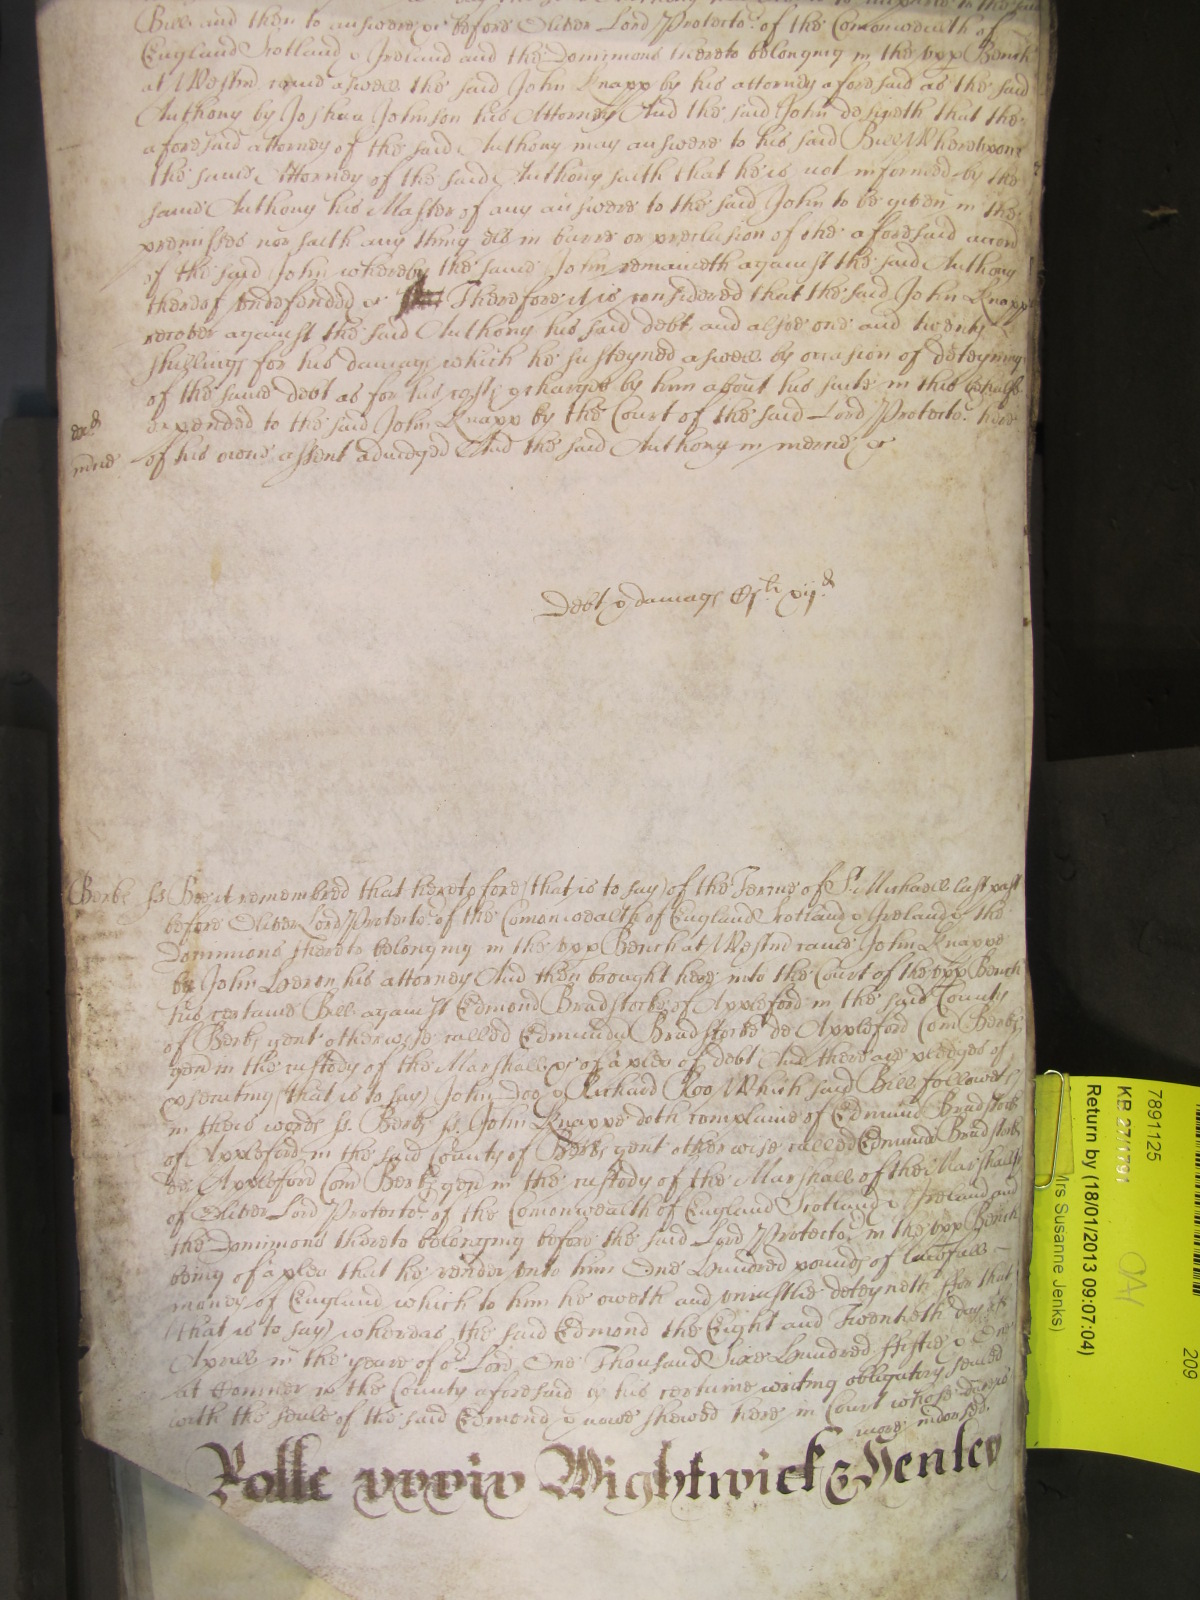 Bill and then to answere &c before Oliver Lord Protecto.r of the Comonwealth of
England Scotland & Ireland and the Dominions thereto belonging in the upp Bench
at Westm.r came aswell the said John Knapp by his attorney aforesaid as the said
Anthony by Joshua Johnson his Attorney And the said John desireth that the
aforesaid attorney of the said Anthony may answere to his said Bill Whereupon
the same Attorney of the said Anthony saith that he is not informed by the
same Anthony his Master of any answere to the said John to be given in the
premisses nor saith any thing els in barre or preclusion of the aforesaid accon
of the said John whereby the same John remaineth against the said Anthony
thereof undefended &c Therefore it is considered that the said John Knapp
recover against the said Anthony his said debt and alsoe one and twenty
shillings for his damags which he susteyned aswell by occasion of deteyning
of the same debt as for his costs & charges by him about his suite in this behalfe
expended to the said John Knapp by the Court of the said Lord Protecto.r here
of his owne assent adiudged And the said Anthony in mercie &c
mcie
Debt & damags
Berks ss Bee it remembred that heretofore (that is to say) of the Terme of S.t Michaell last past
before Oliver Lord Protecto.r of the Comonwealth of England Scotland & Ireland & the
Dominions thereto belonging in the upp Bench at Westm.r came John Knappe
by John his attorney And then brought here into the Court of the upp Bench
his certaine Bill against Edmond Bradstocke of Appleford in the said County
of Berks gent otherwise called Edmundu Bradstocke de Appleford Com Berks
gen in the custody of the Marshall &c of a plea of debt And there are pledges of
psecuting (that is to say) John Doo & Richard Roo Which said Bill followeth
in theis words ss. Berks ss. John Knappe doth complaine of Edmund Bradstock
of Appleford in the said County of Berks gent otherwise called Edmundu Bradstocke
de Appleford Com Berks gen in the custody of the Marshall of the Marshalls
of Oliver Lord Protecto.r of the Comonwealth of England Scotland & Ireland and
the Dominions thereto belonging before the said Lord Protecto.r in the upp Bench
being of a plea that he render unto him One Hundred pounds of lawfull
money of England which to him he oweth and uniustlie deteyneth For that
(that is to say) whereas the said Edmond the Eight and Twentieth day of
Aprill in the yeare of o.r Lord One Thousand Sixe Hundred fiftie & One
at Comner in the County aforesaid by his certaine writing obligatory sealed
with the seale of the said Edmond & nowe shewed here in Court whose date is
more indorsed.
Rolle xxxiv Wightwick & Henley
7891125
KB 27/1791
Return by (18/01/2013 09:07:04)
Mrs Susanne Jenks)
209